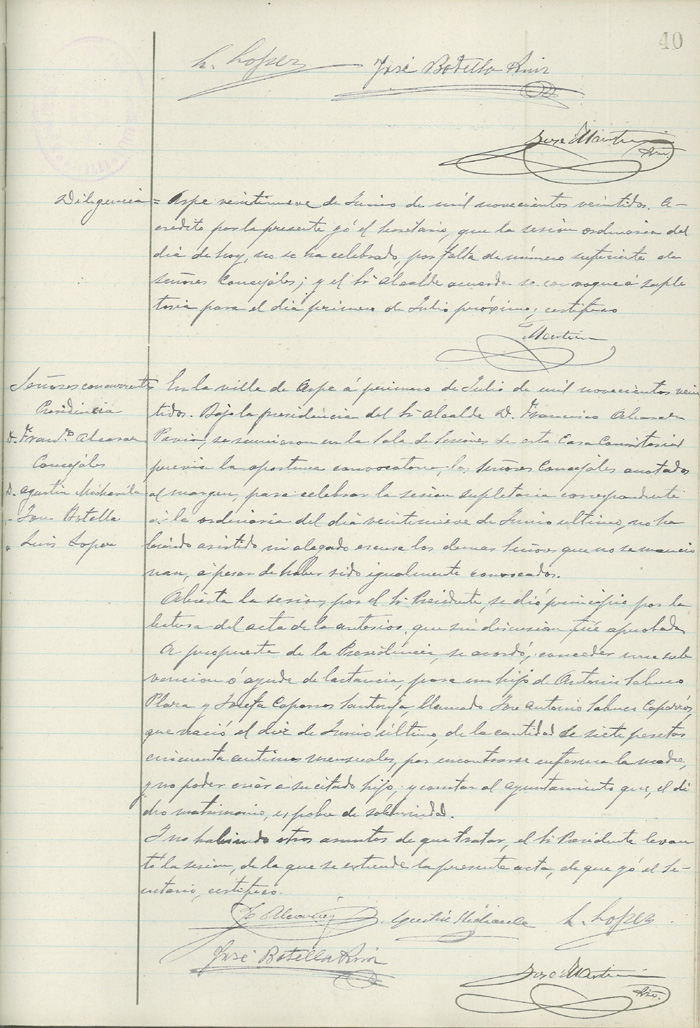 40
L. Lopez José Botella Ruiz
José Martin
Srio.
Diligencia = Aspe veintinueve de Junio de mil novecientos veintidos. A-
credito por la presente yó el Secretario, que la sesión ordinaria del
dia de hoy, no se ha celebrado, por falta de número suficiente de
señores Concejales; y el Sr Alcalde acuerda se convoque á suple
toria para el dia primero de Julio próximo; certifico
Martin
Señores concurrentes
Presidencia
D. Franco. Alcaraz
Concejales
D. Agustin
" Jose Botella
" Luis Lopez
En la villa de Aspe á primero de Julio de mil novecientos vein
tidos. Bajo la presidencia del Sr Alcalde D. Francisco Alcaraz
Pavia, se reunieron en la Sala de Sesiones de esta Casa Consistorial
previa la oportuna convocatoria, los Señores Concejales anotados
al margen, para celebrar la sesion supletoria correspondiente
á la ordinaria del dia veintinueve de Junio ultimo, no ha
biendo asistido ni alegado escusa los demas Señores que no se mencio
nan, á pesar de haber sido igualmente convocados.
Abierta la sesion por el Sr Presidente, se dió principio por la
lectura del acta de la anterior, que sin discusion fué aprobada
A propuesta de la Presidencia, se acordó, conceder una sub
vencion ó ayuda de lactancia, para un hijo de Antonio Sabuco
y Josefa Caparros llamado Jose Antonio Sabuco Caparrós,
que nació el diez de Junio último, de la cantidad de siete pesetas
cincuenta centimos mensuales, por encontrarse enferma la madre,
y no poder criar á su citado hijo; y constar al ayuntamiento que, el di
cho matrimonio, es pobre de solemnidad.
Y no habiendo otros asuntos de que tratar, el Sr Presidente levan
tó la sesion, de la que se extiende la presente acta, de que yó el Se-
cretario, certifico.
F. Alcaraz Agustin L. Lopez
José Botella Ruiz
José Martin
Srio.